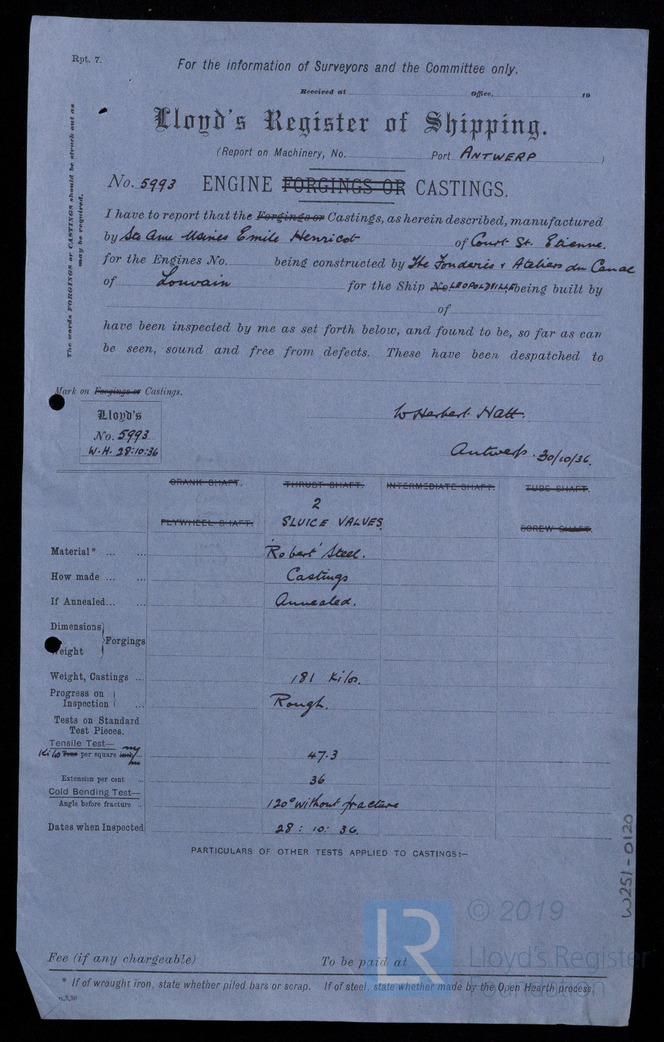 Rpt. 7.
For the information of Surveyors and the Committee only.
Received at Office, 19
Lloyd's Register of Shipping.
(Report on Machinery, No. Port ANTWERP )
No. 5993 ENGINE FORGINGS OR CASTINGS.
The words FORGINGS or CASTINGS should be struck out as
may be required.
I have to report that the Forgings or Castings, as herein described, manufactured
by Sté Ame Usines Emile Henricot of Court St. Etienne.
for the Engines No. being constructed by The Fonderies & Ateliers du Canal
of Louvain for the Ship No LEOPOLDVILLE being built by
of
have been inspected by me as set forth below, and found to be, so far as can
be seen, sound and free from defects. These have been despatched to
Mark on Forgings or Castings.
Lloyd's
No. 5993
W.H. 28:10:36
W Herbert Natt.
Antwerp. 30/10/36.
CRANK SHAFT. THRUST SHAFT. INTERMEDIATE SHAFT. TUBE SHAFT.
2
FLYWHEEL SHAFT. SLUICE VALVES SCREW SHAFT.
Material* ... ... 'Robert' Steel.
How made ... ... Castings
If Annealed... ... Annealed.
Dimensions
Forgings
Weight
Weight, Castings ... 181 Kilos.
Progress on
Inspection Rough.
Tests on Standard
Test Pieces.
Tensile Test—
Kilo Tons per square inch 47.3
Extension per cent .. 36
Cold Bending Test—
Angle before fracture . 120° without fracture
Dates when Inspected 28: 10: 36.
PARTICULARS OF OTHER TESTS APPLIED TO CASTINGS:—
W251-0120
Fee (if any chargeable) To be paid at
* If of wrought iron, state whether piled bars or scrap. If of steel, state whether made by the Open Hearth process.
LR
© 2019
Lloyd's Register
Foundation